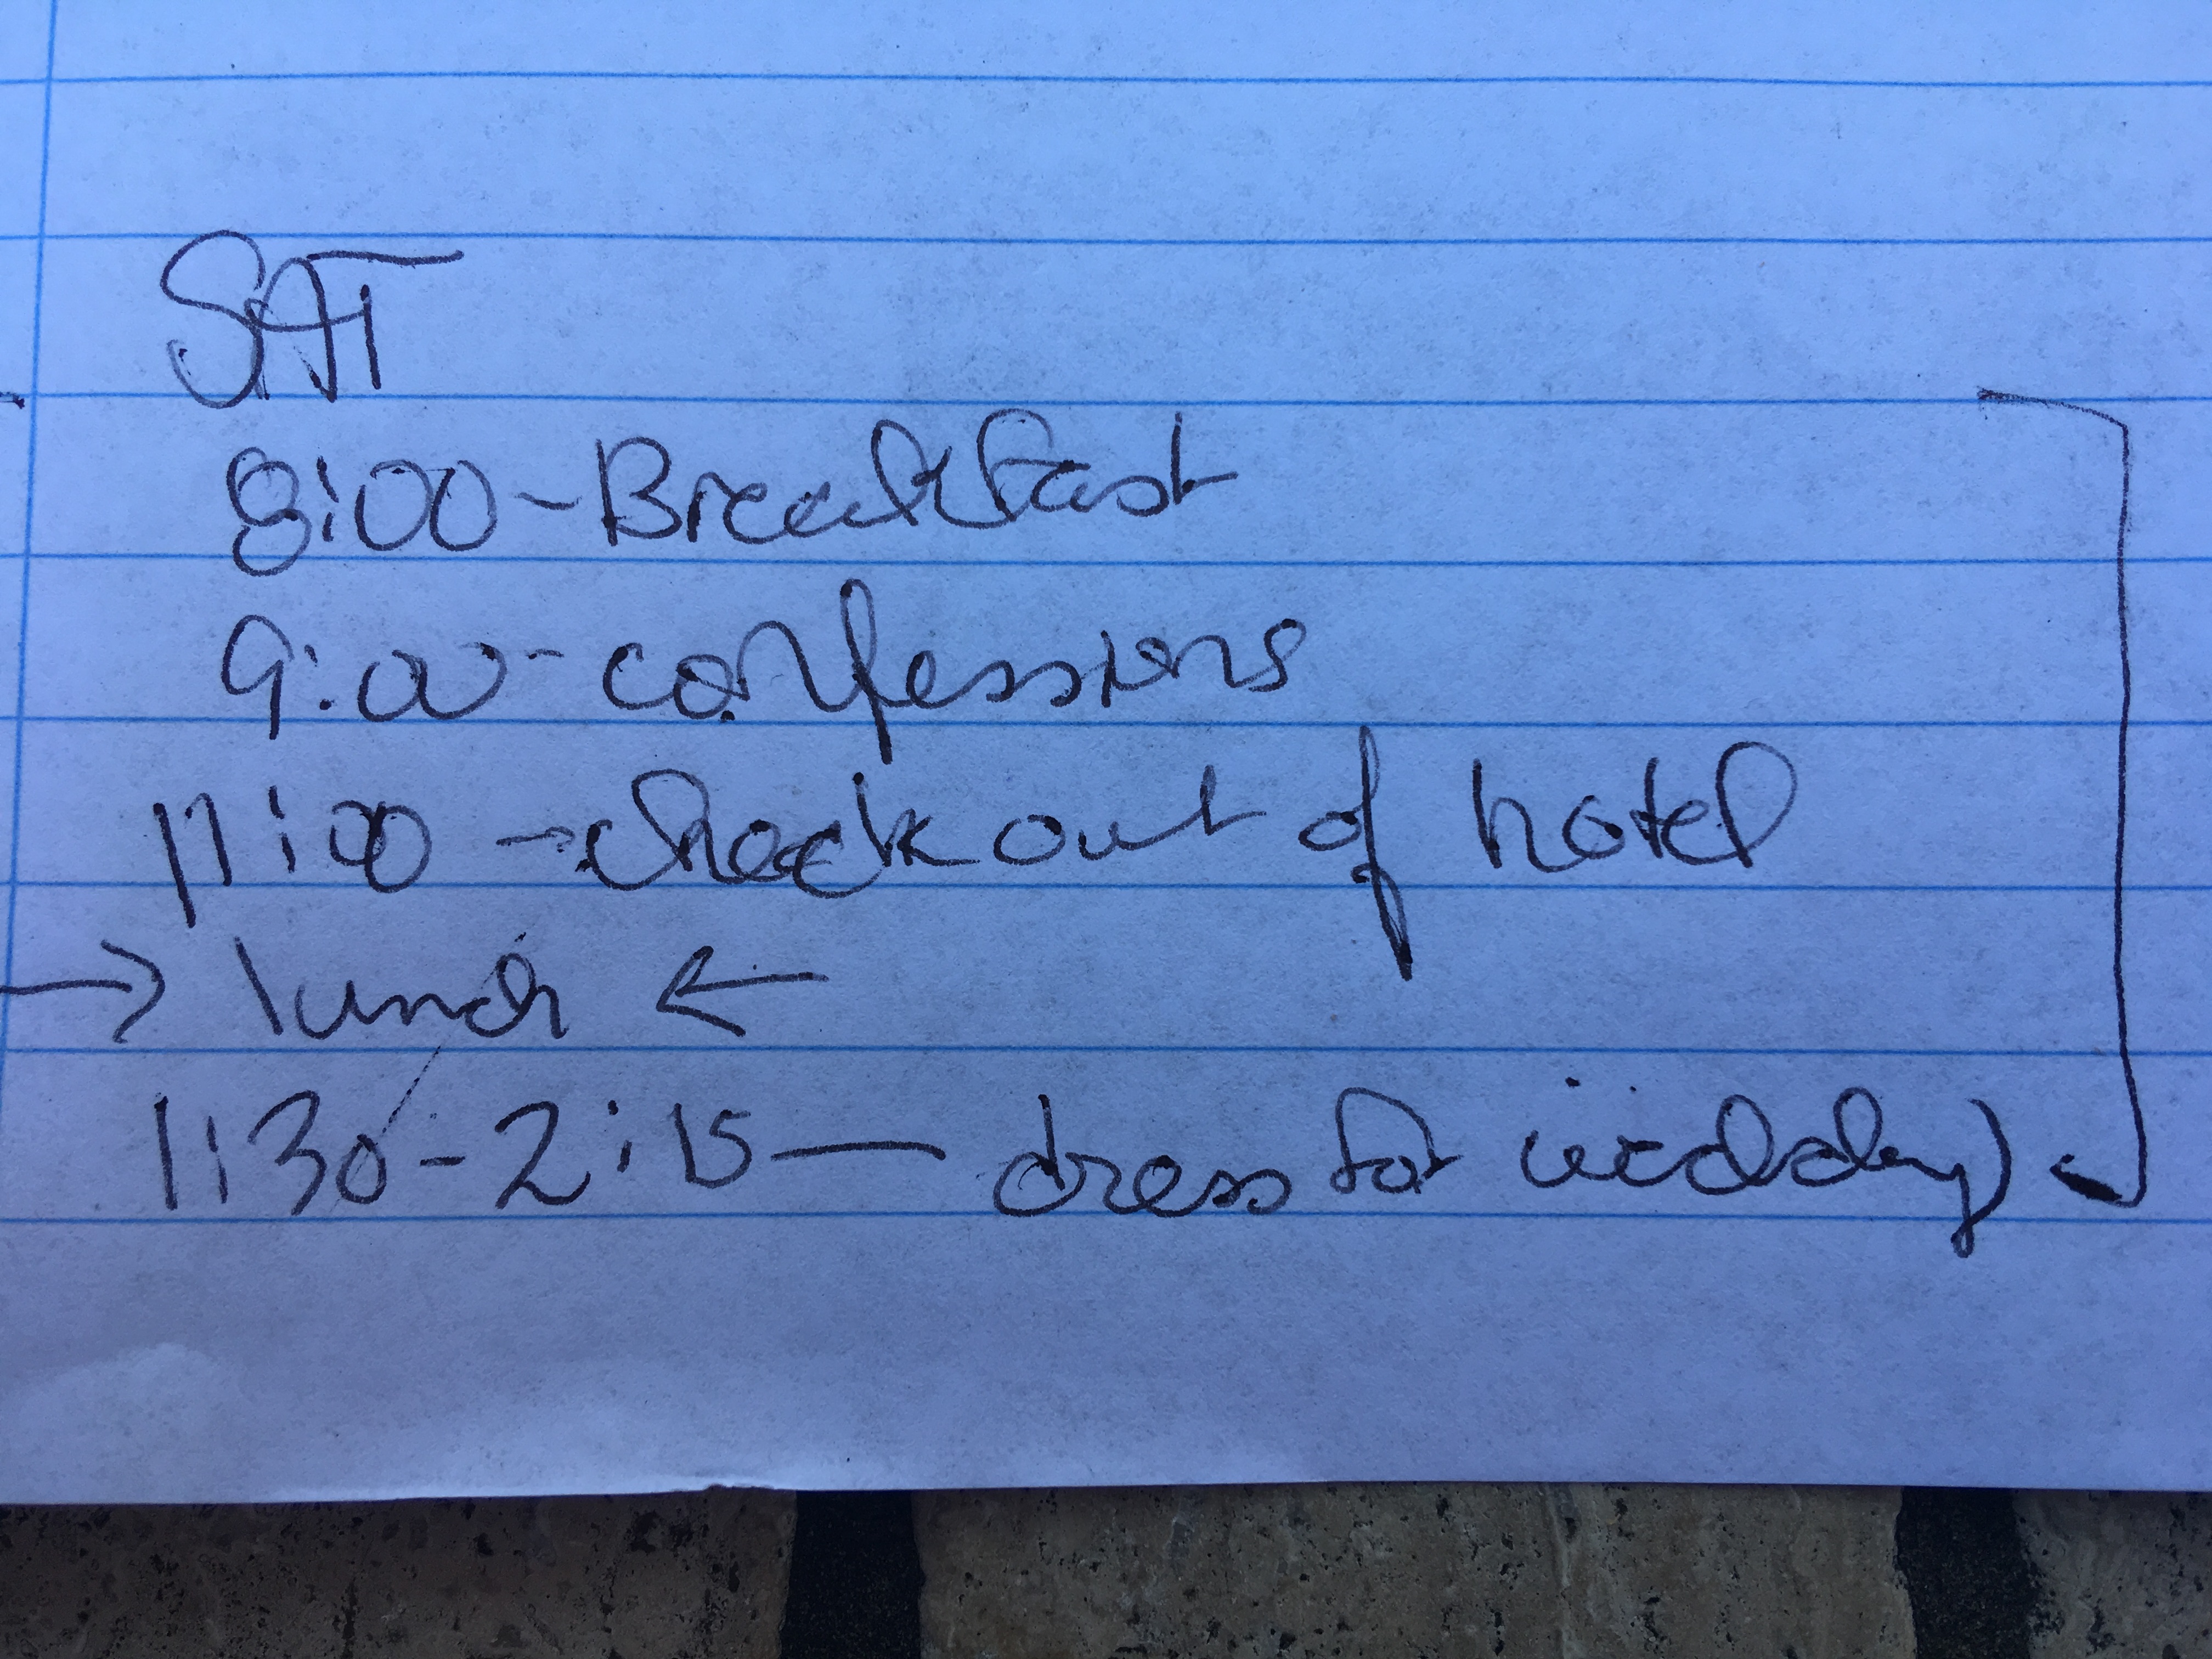 SAT
8:00 - Breakfast
9:00 - confessions
11:00 - check out of hotel
→ lunch ←
1:30 - 2:15 — dress for wedding